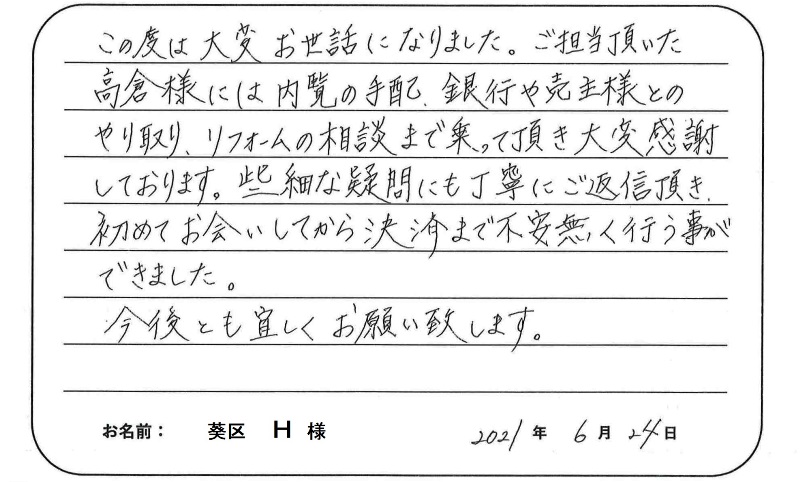 この度は大変お世話になりました。ご担当頂いた
高倉様には内覧の手配、銀行や売主様との
やり取り、リフォームの相談まで乗って頂き大変感謝
しております。些細な疑問にも丁寧にご返信頂き、
初めてお会いしてから決済まで不安無く行う事が
できました。
今後とも宜しくお願い致します。
お名前： 葵区 H 様 2021年 6月 24日